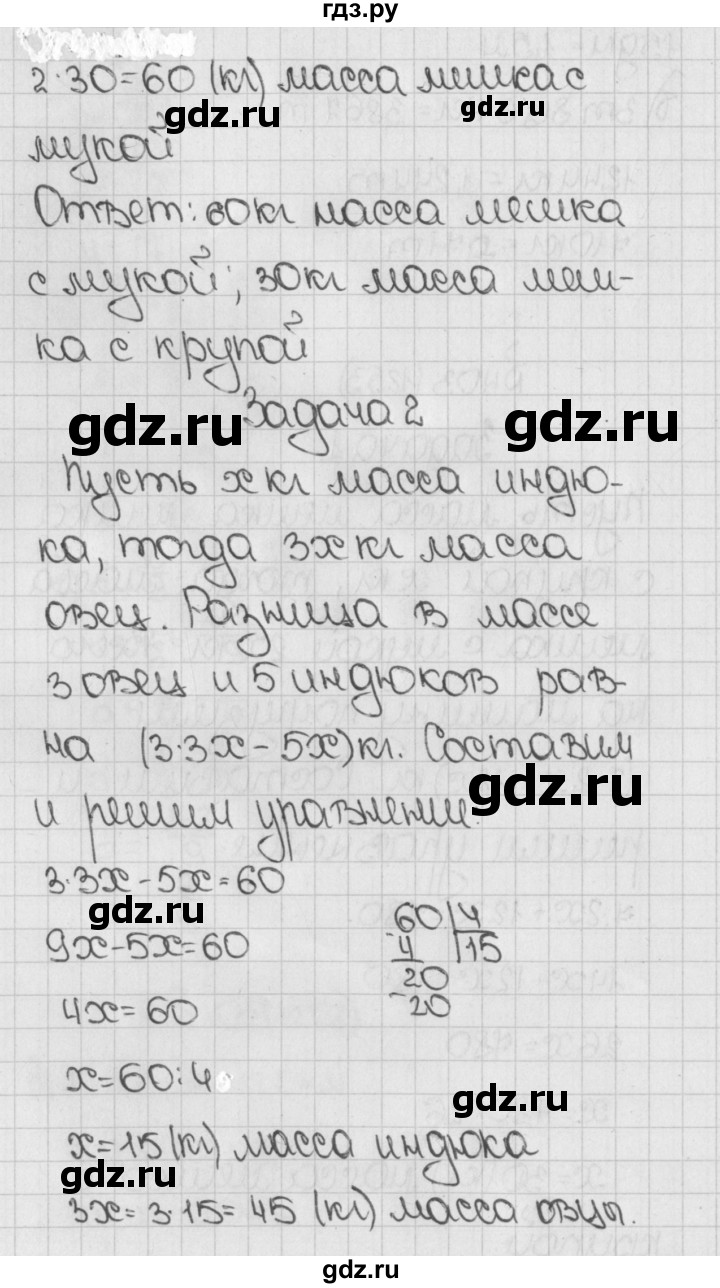 гдз.ру
2·30=60 (кг) масса мешка с
gdz.ru
gdz.ru
мукой
Ответ: 60 кг масса мешка
с мукой; 30 кг масса меш-
ка с крупой
gdz.ru
Задача 2
gdz.ru
Пусть x кг масса индю-
ка, тогда 3x кг масса
овец. Разница в массе
3 овец и 5 индюков рав-
на (3·3x - 5x) кг. Составим
gdz.ru
и решим уравнение.
3·3x - 5x = 60
gdz.ru
60 4
9x - 5x = 60
4 15
20
4x = 60
20
x = 60 : 4
gdz.ru
x = 15 (кг) масса индюка
gdz.ru
3x = 3·15 = 45 (кг) масса овцы.
gdz.ru